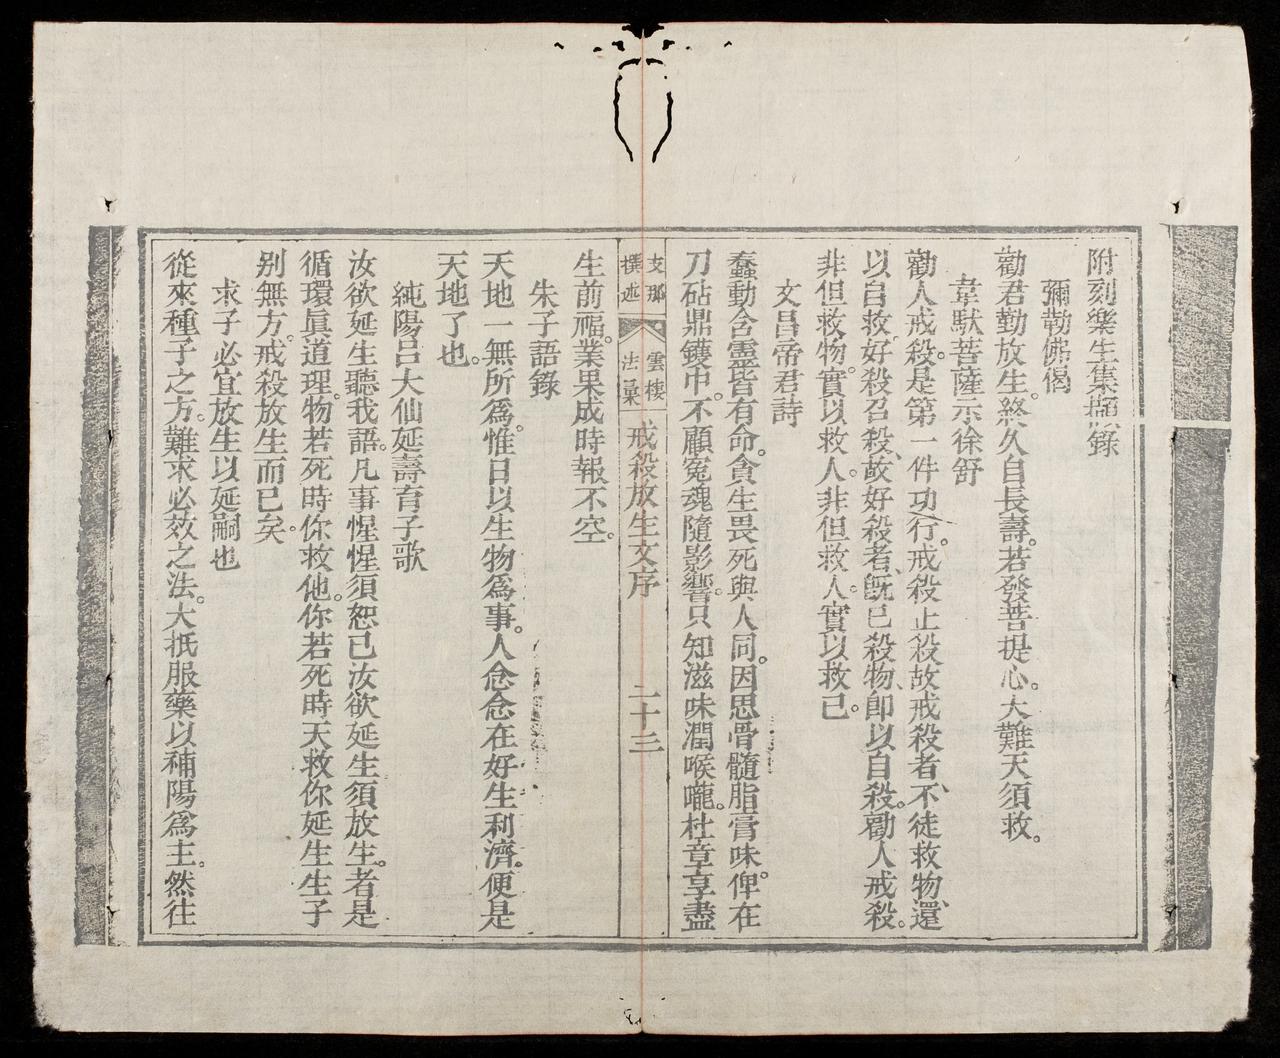 附刻樂生集擷錄
彌勒佛偈
勸君勤放生。終久自長壽。若發菩提心。大難天須救。
韋馱菩薩示徐舒
勸人戒殺。是第一件功行。戒殺止殺。故戒殺者、不徒救物、還
以自救、好殺召殺、故好殺者、旣已殺物、卽以自殺。勸人戒殺。
非但救物。實以救人。非但救人。實以救己。
文昌帝君詩
蠢動含靈皆有命。貪生畏死與人同。因思骨髓脂膏味。俾在
刀砧鼎鑊中。不顧冤魂隨影響。只知滋味潤喉嚨。杜章享盡
支那
撰述
雲棲
法彙
戒殺放生文序
二十三
生前福。業果成時報不空。
朱子語錄
天地一無所爲。惟日以生物爲事。人念念在好生利濟。便是
天地了也。
純陽呂大仙延壽育子歌
汝欲延生聽我語。凡事惺惺須恕己汝欲延生須放生。者是
循環眞道理。物若死時你救他。你若死時天救你延生生子
別無方。戒殺放生而已矣。
求子必宜放生以延嗣也
從來種子之方。難求必效之法。大抵服藥以補陽爲主。然往